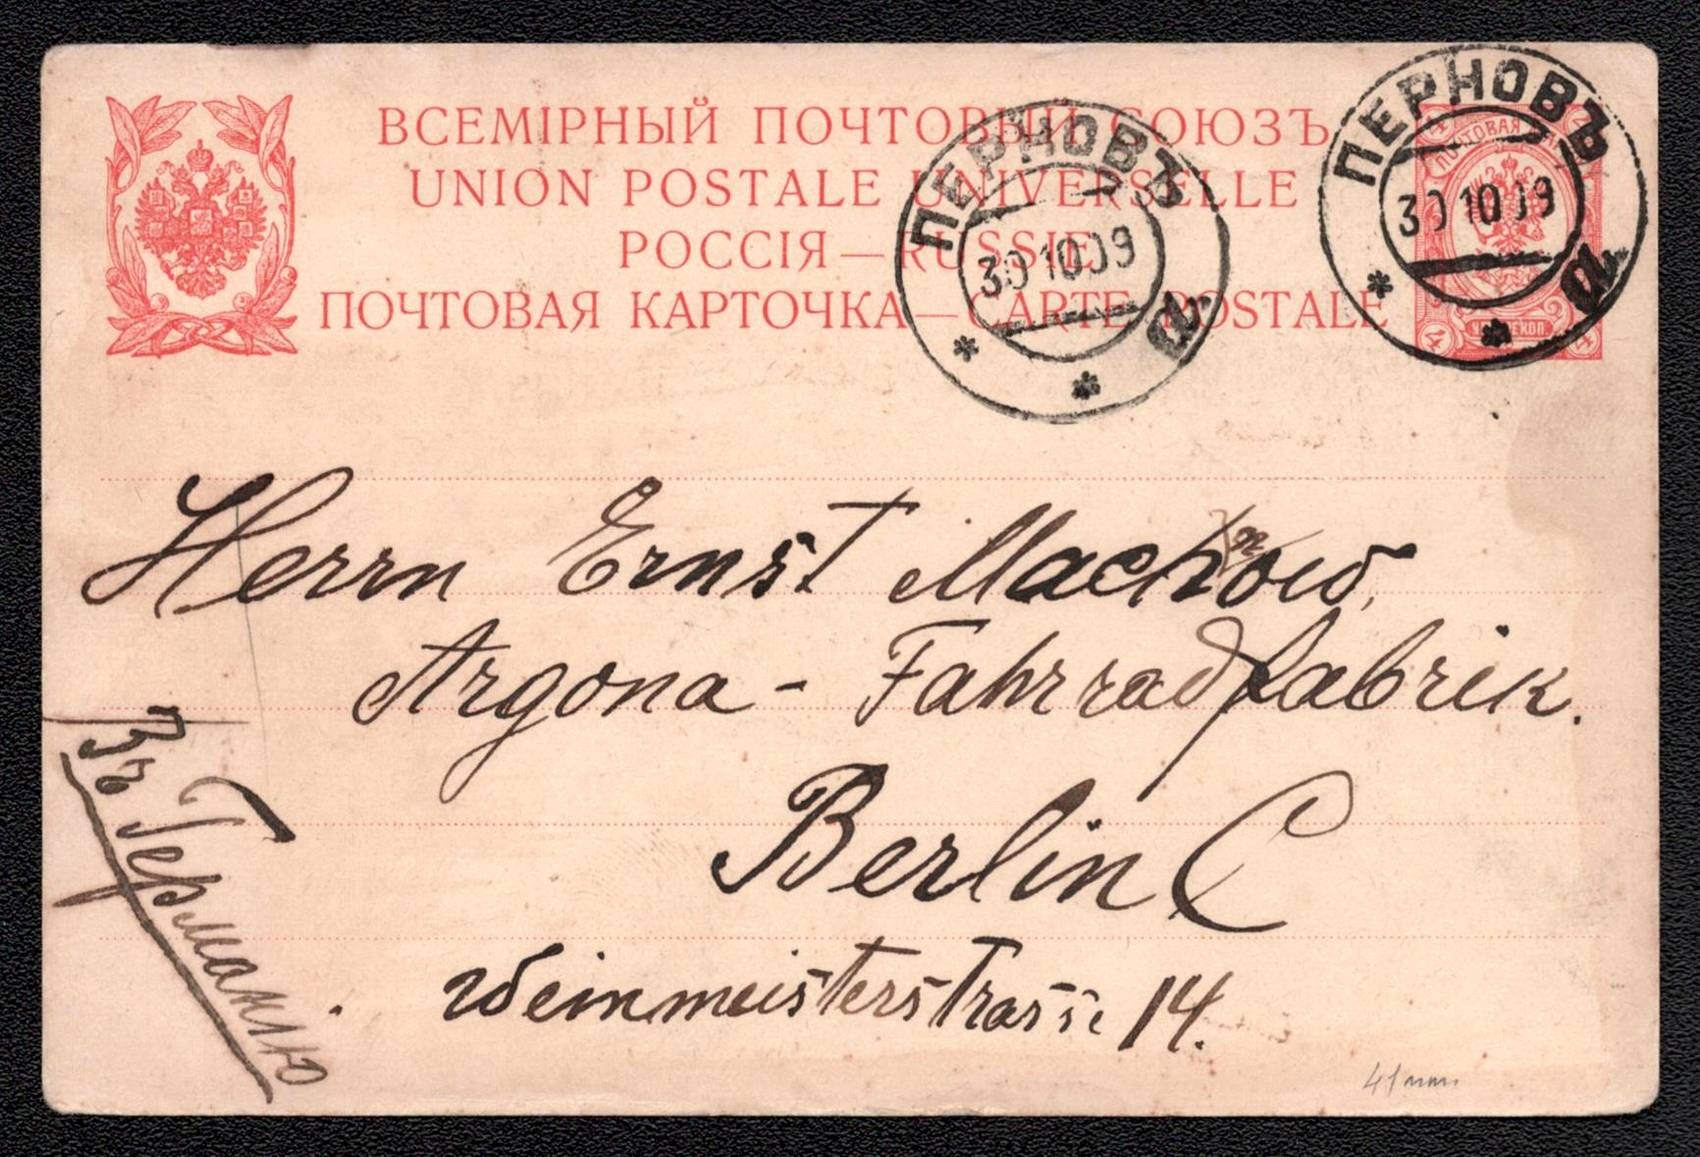 ВСЕМІРНЫЙ ПОЧТОВЫЙ СОЮЗЪ
UNION POSTALE UNIVERSELLE
РОССІЯ — RUSSIE
ПОЧТОВАЯ КАРТОЧКА — CARTE POSTALE
ПЕРНОВЪ
30 10 09
а
ПЕРНОВЪ
30 10 09
а
ПОЧТОВАЯ
4 4
Herrn Ernst Machnow,
Argona - Fahrradfabrik.
Berlin C
Weinmeisterstrasse 14.
Въ Германію
41 mm.